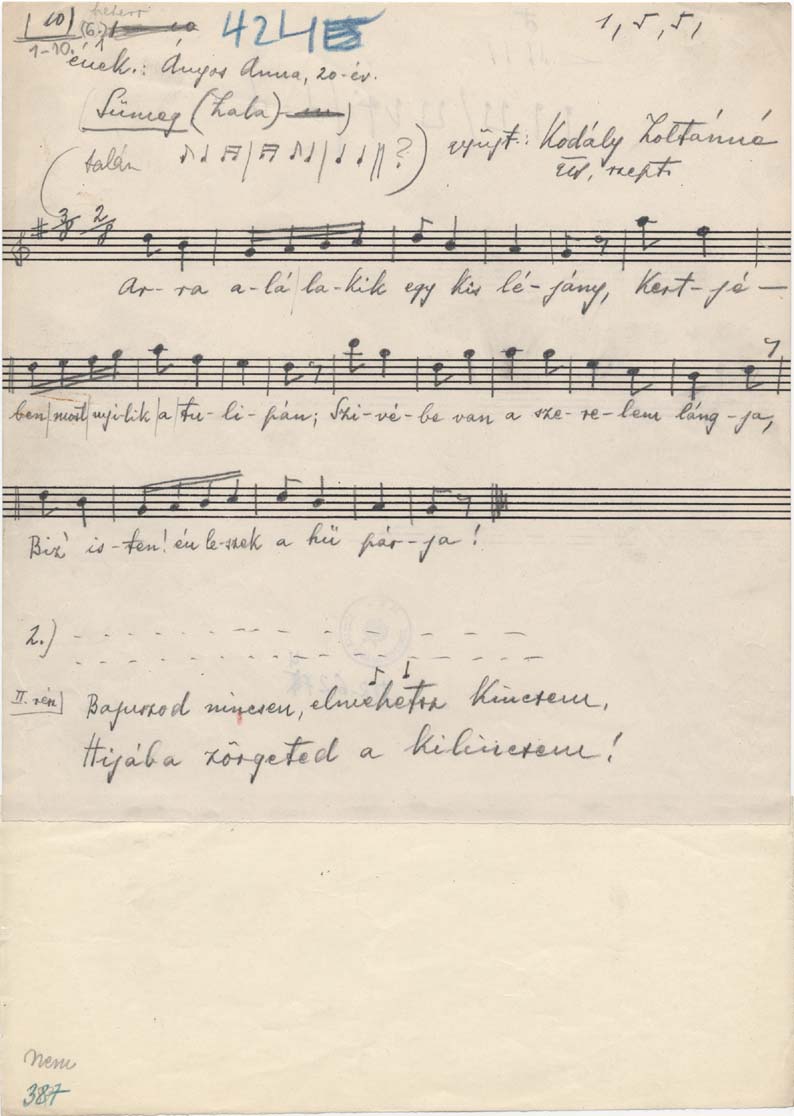 10 (6.) 424 1, 5, 5,
1-10. 1
ének.: Ányos Anna, 20-év.
(Sümeg (Zala)
talán ?) gyűjt.: Kodály Zoltánné
szept.
3/8 2/8
Ar-ra a-lá la-kik egy kis lé-jány, Kert-jé-
ben most nyi-lik a tu-li-pán; Szi-vé-be van a sze-re-lem láng-ja,
Biz' is-ten! én le-szek a hű pár-ja!
2.)
II. rész Bajuszod nincsen, elmehetsz kincsem,
Hijába zörgeted a kilincsem!
Nem
387